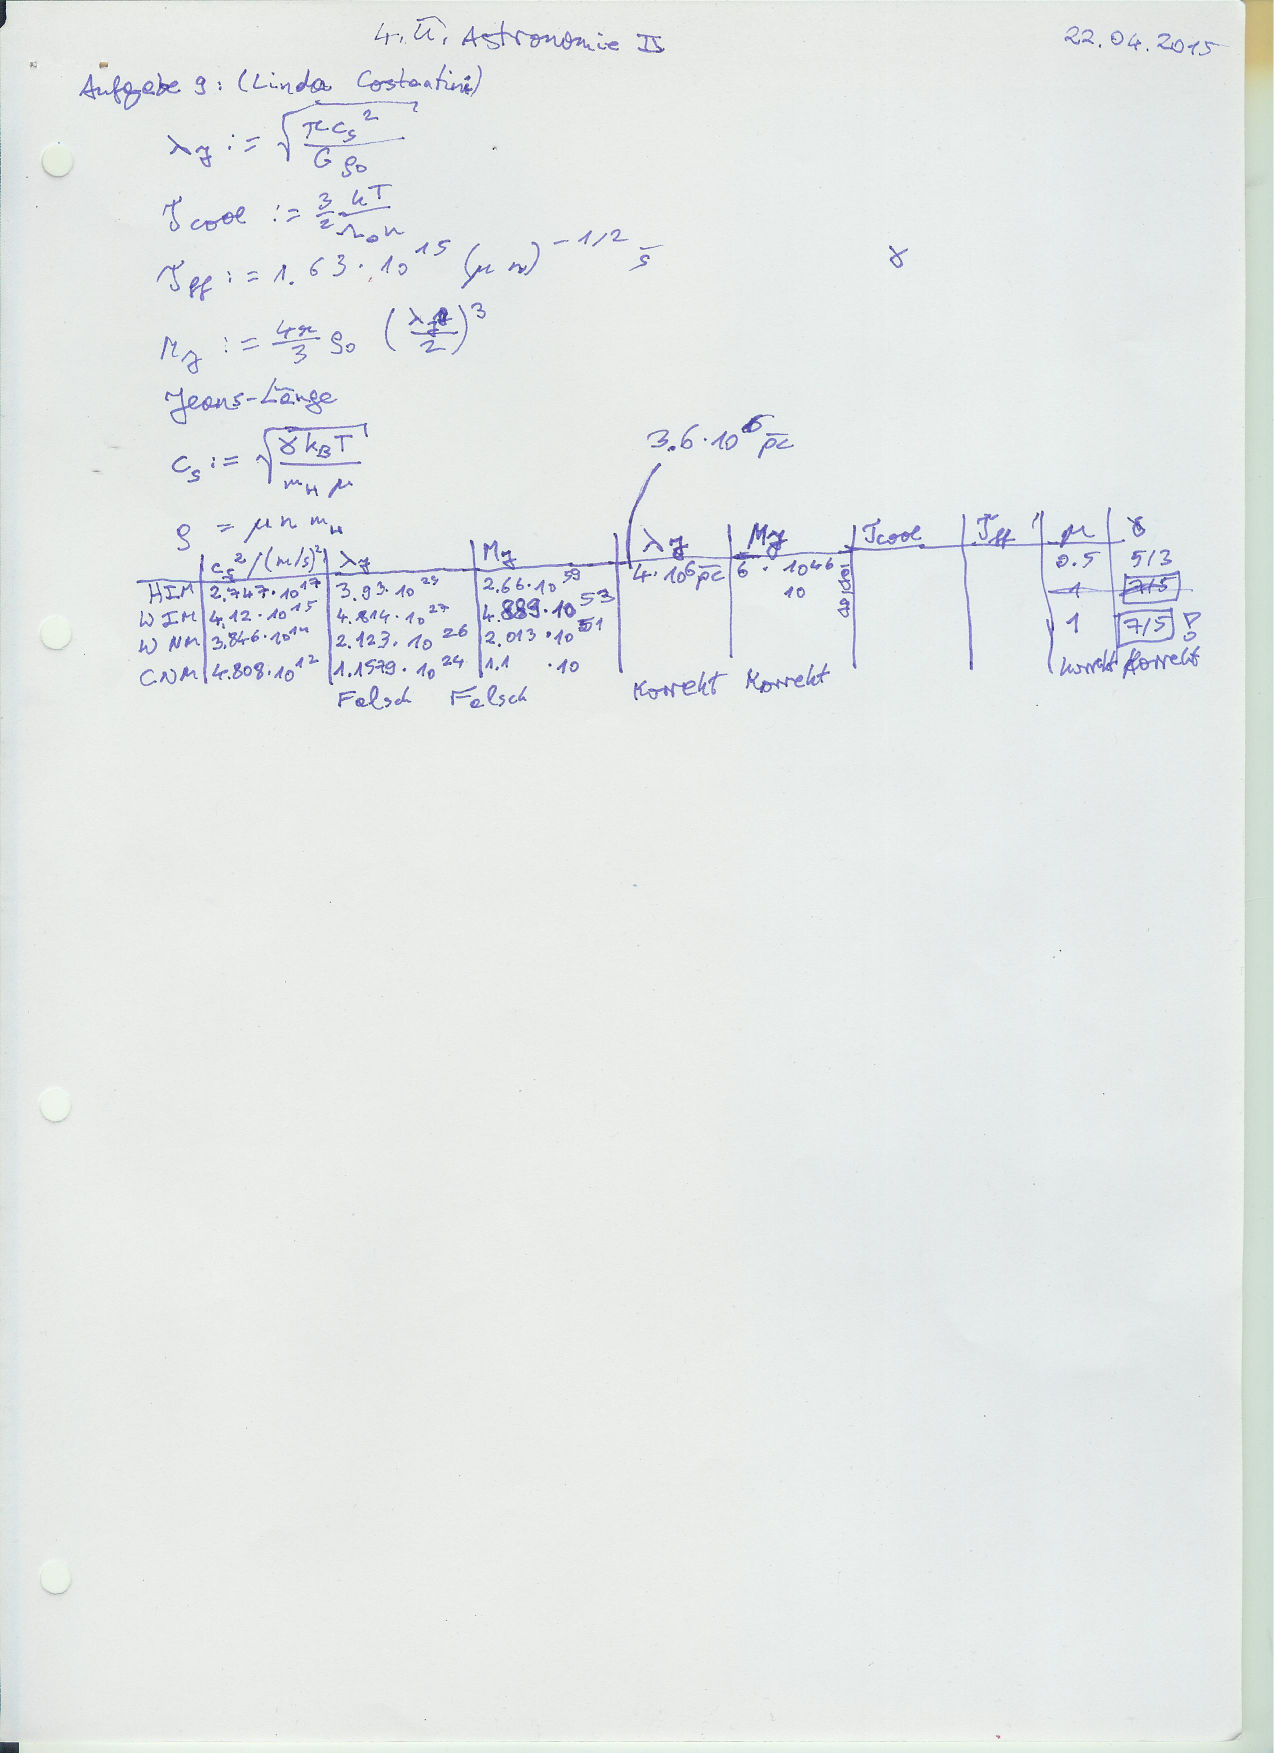 4. Ü. Astronomie II 22.04.2015
Aufgabe 9: (Linda Costantini)
λ_J := √(π c_s² / (G ρ₀))
τ_cool := 3/2 kT / (Λ₀ n)
τ_ff := 1.63 · 10^15 (μ n)^(-1/2) s
γ
M_J := 4π/3 ρ₀ (λ_J / 2)³
Jeans-Länge
c_s := √(γ k_B T / (m_H μ))
3.6 · 10^6 pc
ρ = μ n m_H
c_s² / (m/s)² | λ_J | M_J | λ_J | M_J | τ_cool | τ_ff | μ | γ
HIM | 2.747 · 10^17 | 3.93 · 10^29 | 2.66 · 10^59 | 4 · 10^6 pc | 6 · 10^46 | 0.5 | 5/3
WIM | 4.12 · 10^15 | 4.814 · 10^27 | 4.889 · 10^53 | 10 | 1 | 7/5
WNM | 3.846 · 10^14 | 2.123 · 10^26 | 2.013 · 10^51 | 1 | 7/5 !
CNM | 4.808 · 10^12 | 1.1579 · 10^24 | 1.1 · 10
Falsch Falsch Korrekt Korrekt Korrekt Korrekt